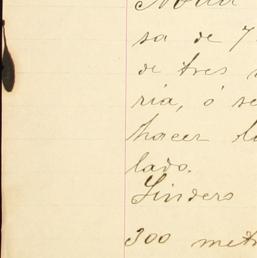 sa de 7
de tres
ria, ó se
hacer
lado.
Linders
300 met